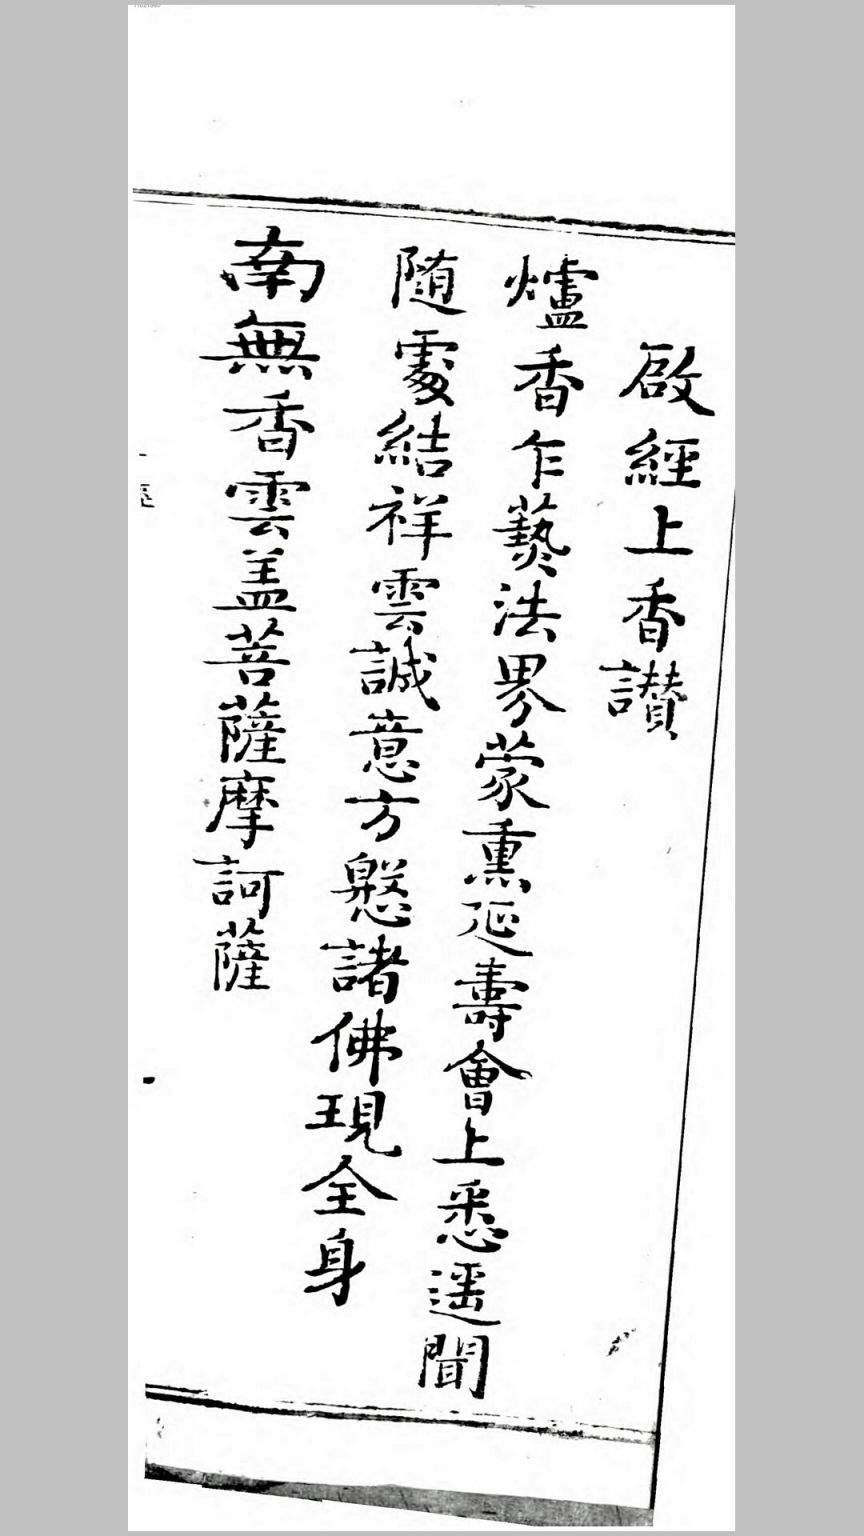 啟經上香讃
爐香乍爇法界蒙熏延壽會上悉遥聞
随處結祥雲誠意方慇諸佛現全身
南無香雲盖菩薩摩訶薩